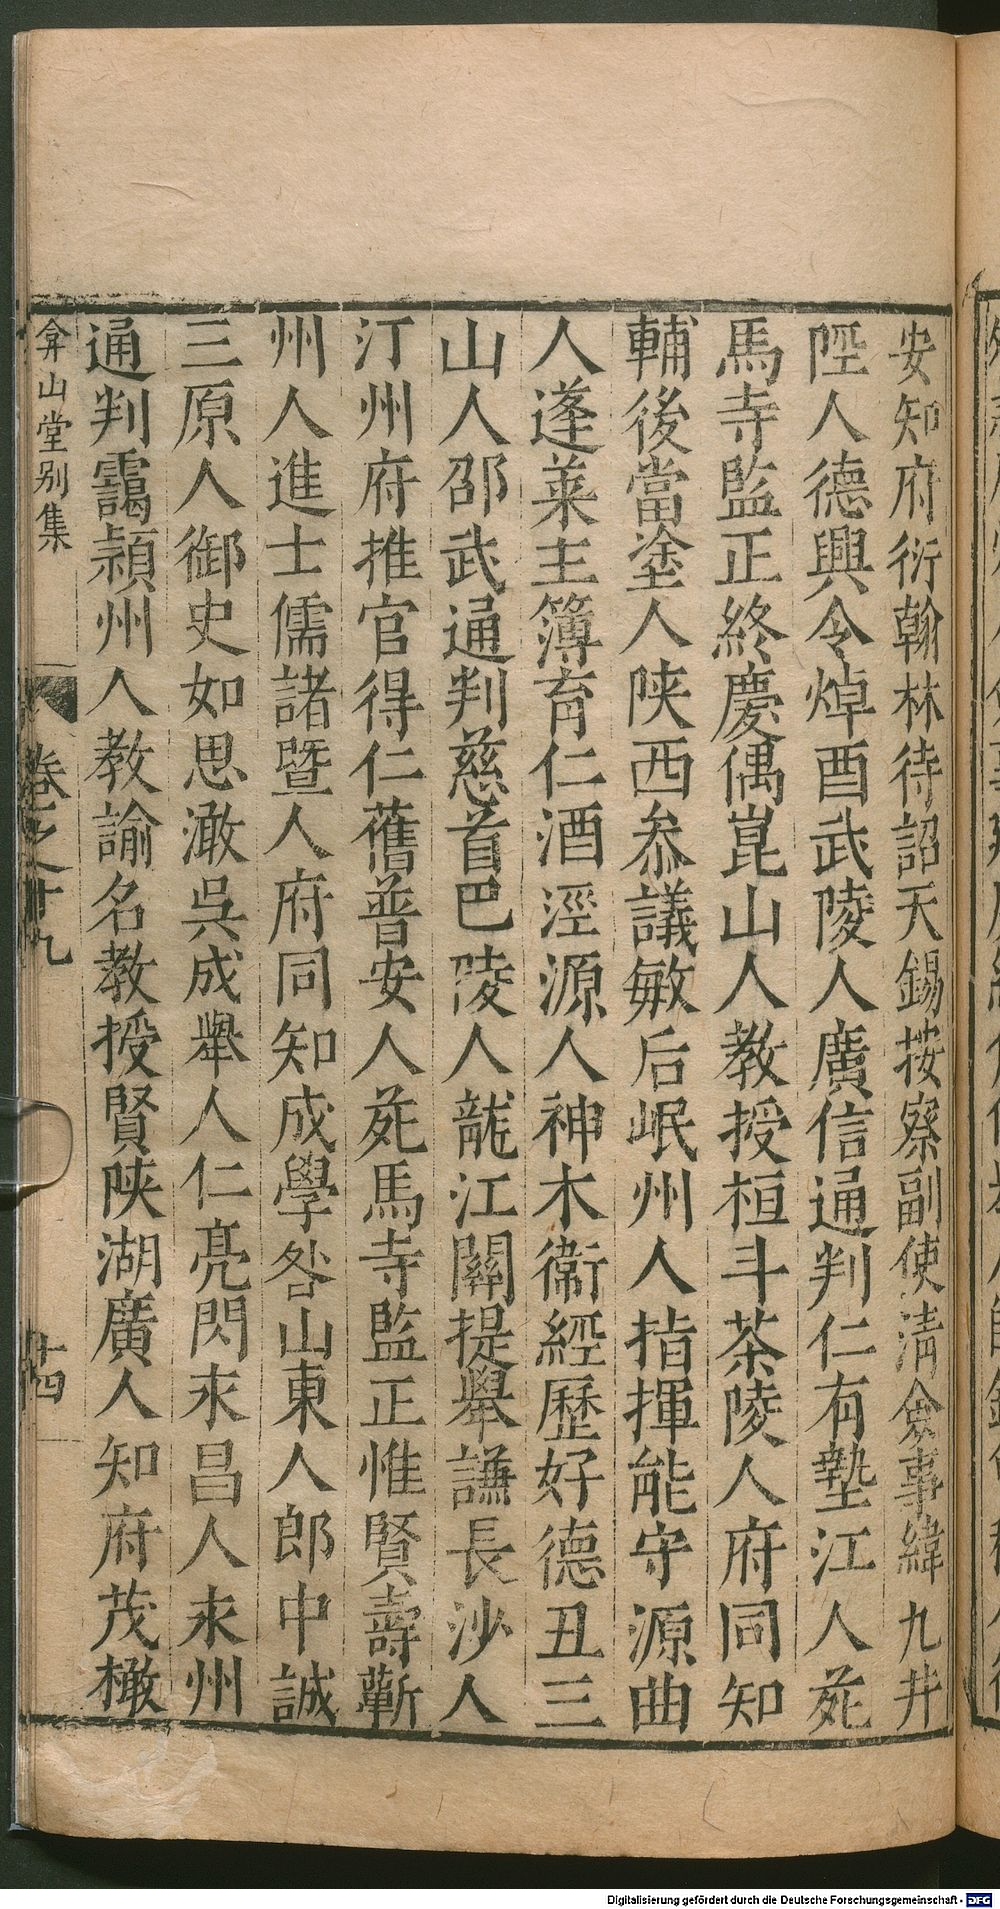 安知府衍翰林待詔天錫按察副使清僉事緯九井
陘人德興令焯酉武陵人廣信通判仁有墊江人苑
馬寺監正終慶偶崑山人教授桓斗茶陵人府同知
輔後當塗人陝西叅議敏后岷州人指揮能守源曲
人蓬萊主簿育仁酒涇源人神木衞經歷好德丑三
山人邵武通判慈首巴陵人龍江關提舉謙長沙人
汀州府推官得仁舊普安人苑馬寺監正惟賢壽蘄
州人進士儒諸暨人府同知成學明山東人郎中誠
三原人御史如思澉吳成舉人仁亮閃永昌人永州
通判靄潁州人教諭名教授賢陝湖廣人知府茂橄
弇山堂别集
卷之十九
十四
Digitalisierung gefördert durch die Deutsche Forschungsgemeinschaft - DFG